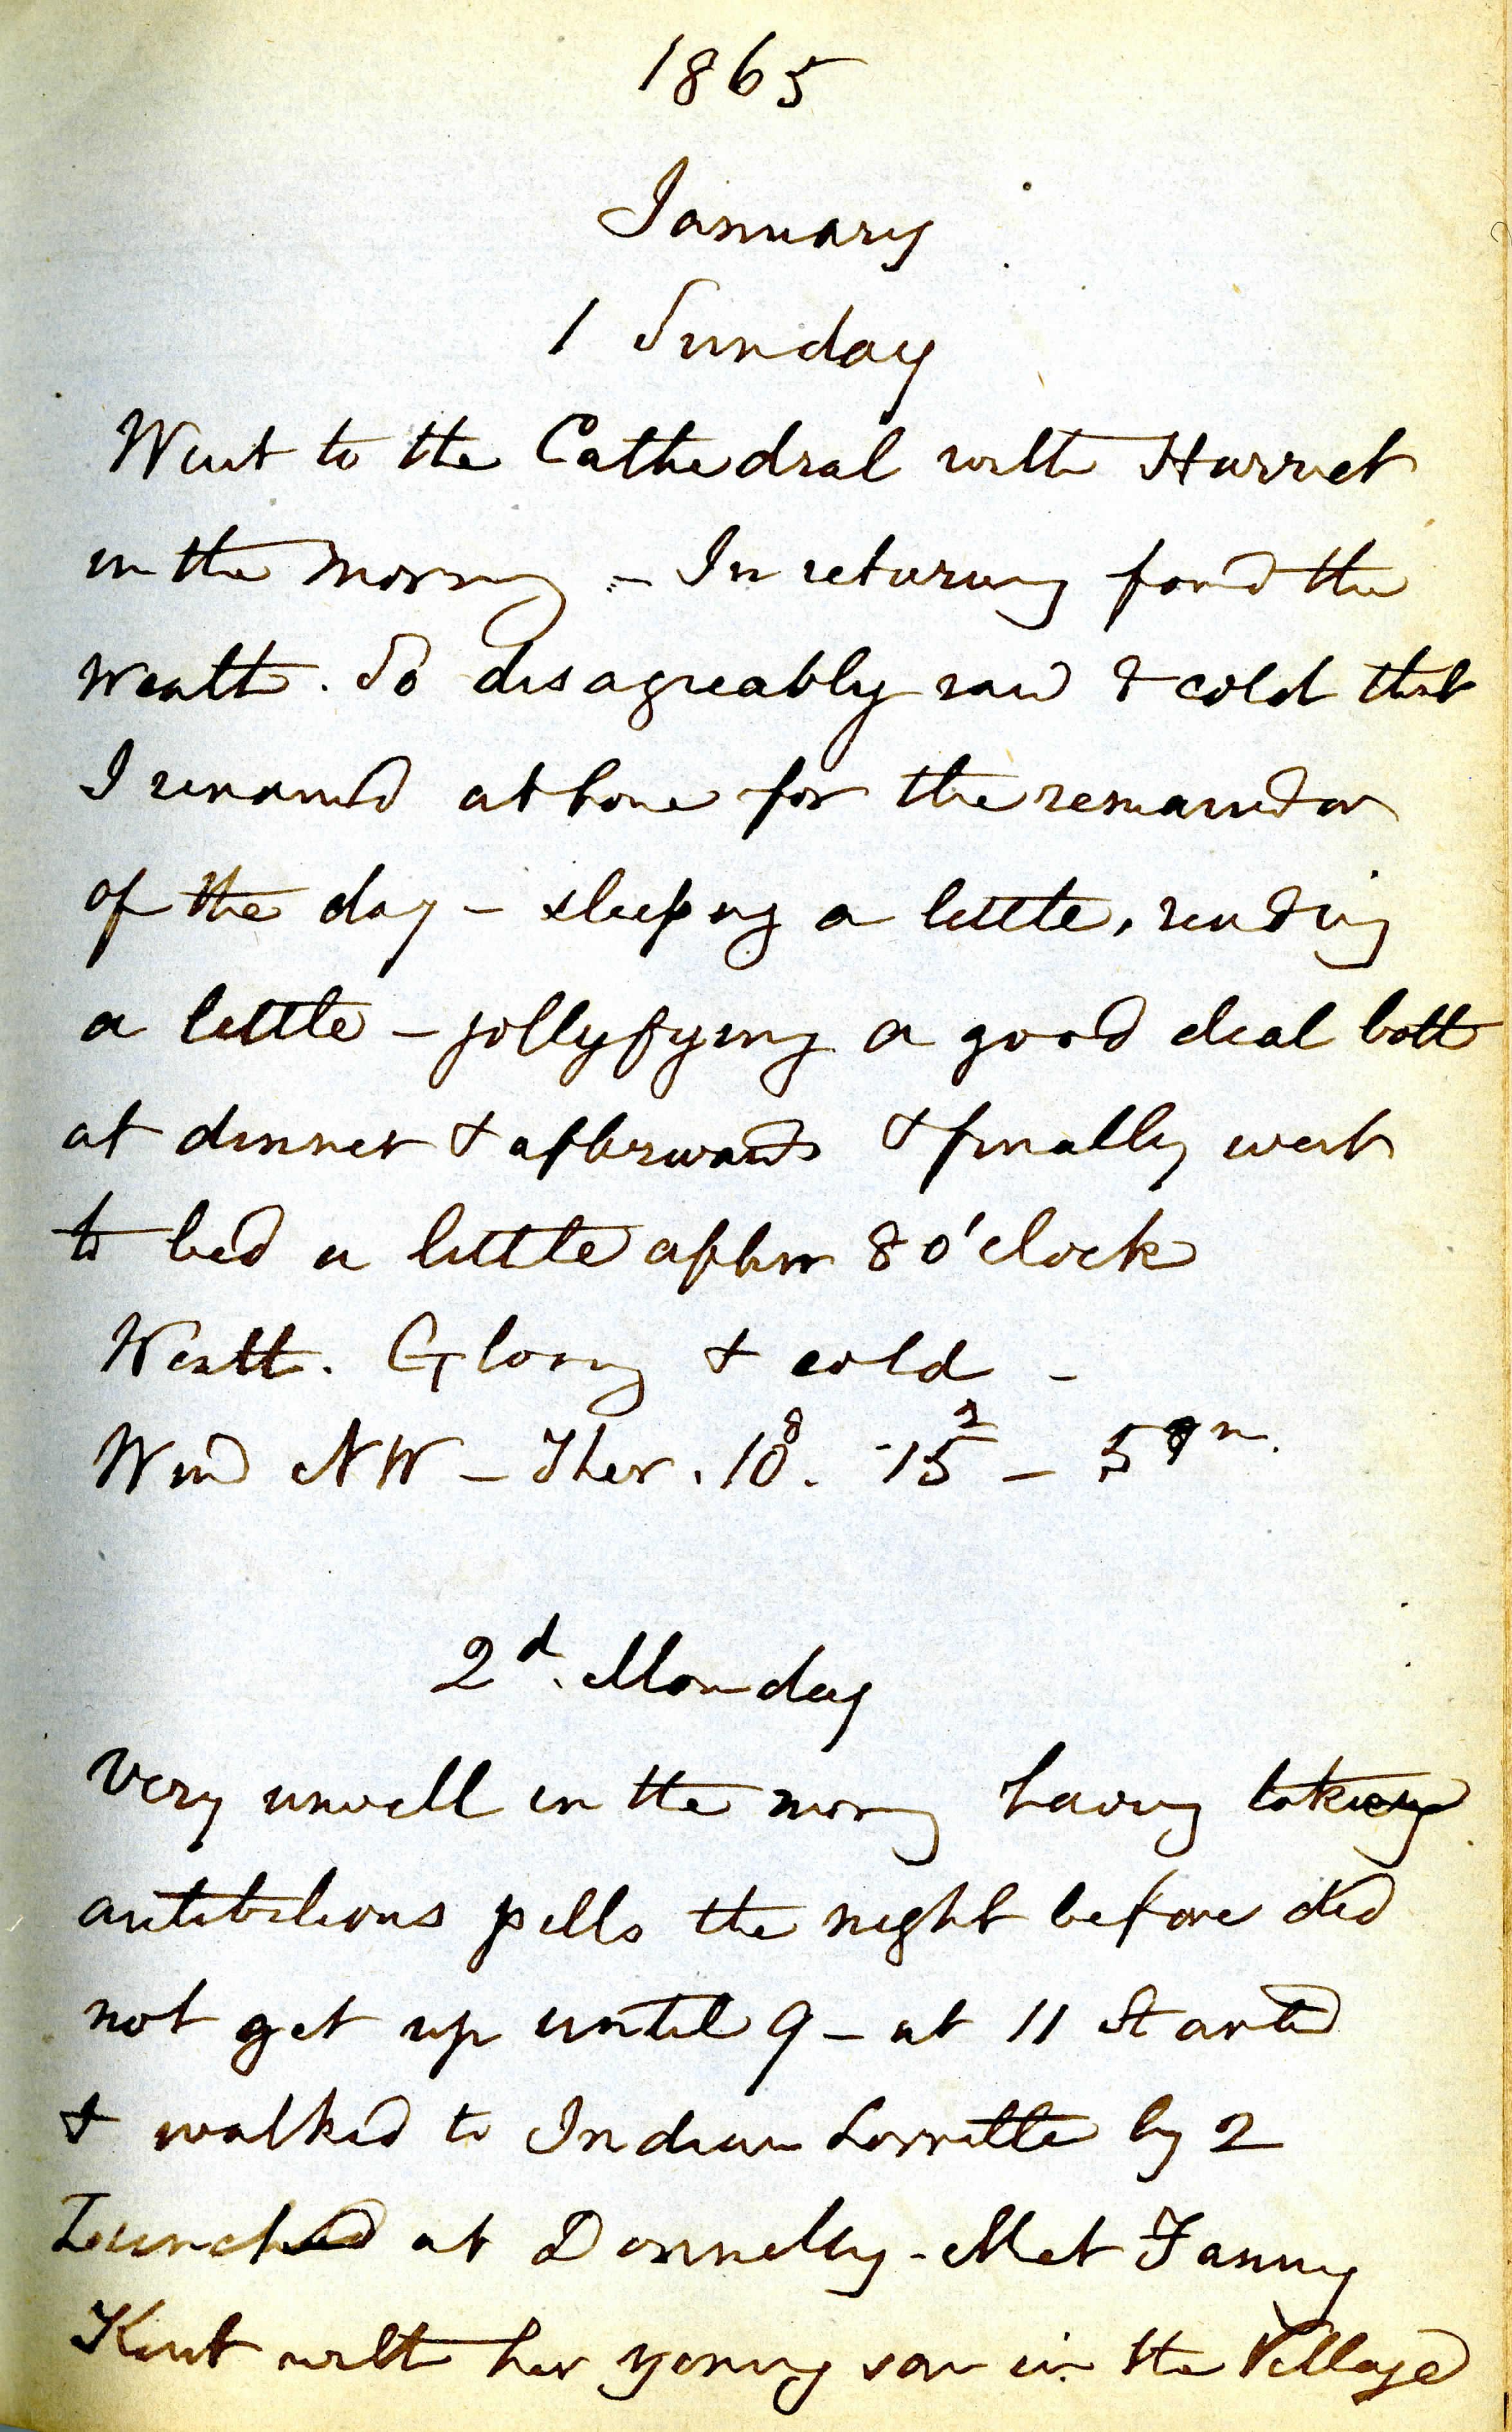 1865
January
1 Sunday
Went to the Cathedral with Harriet
in the morning - In returning found the
Weath. So disagreeably raw & cold that
I remained at home for the remainder
of the day - sleeping a little, reading
a little - jollyfying a good deal both
at dinner & afterwards & finally went
to bed a little after 8 o'clock
Weath. Gloomy & cold -
Wind NW - Ther. 10
2d. Monday
Very unwell in the morng having taken
antibilious pills the night before did
not get up until 9 - at 11 started
& walked to Indian Lorrette by 2
Lunched at Donnelly - Met Fanny
Kent with her young son in the Village